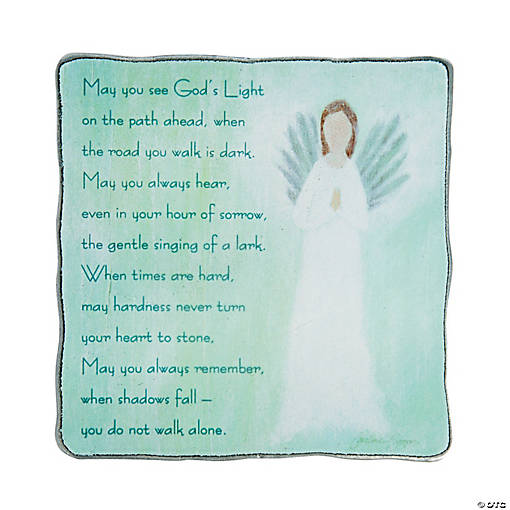 May you see God's Light
on the path ahead, when
the road you walk is dark.
May you always hear,
even in your hour of sorrow,
the gentle singing of a lark.
When times are hard,
may hardness never turn
your heart to stone,
May you always remember,
when shadows fall –
you do not walk alone.
© OTC